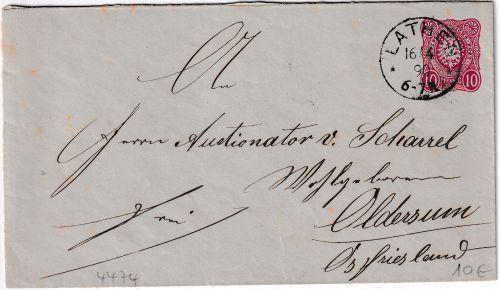 An
LATHEN
16 4
90
6-7N
10 10
Herrn Auctionator v. Scharrel
Wohlgeboren
frei
Oldersum
Ostfriesland
4474
10 €